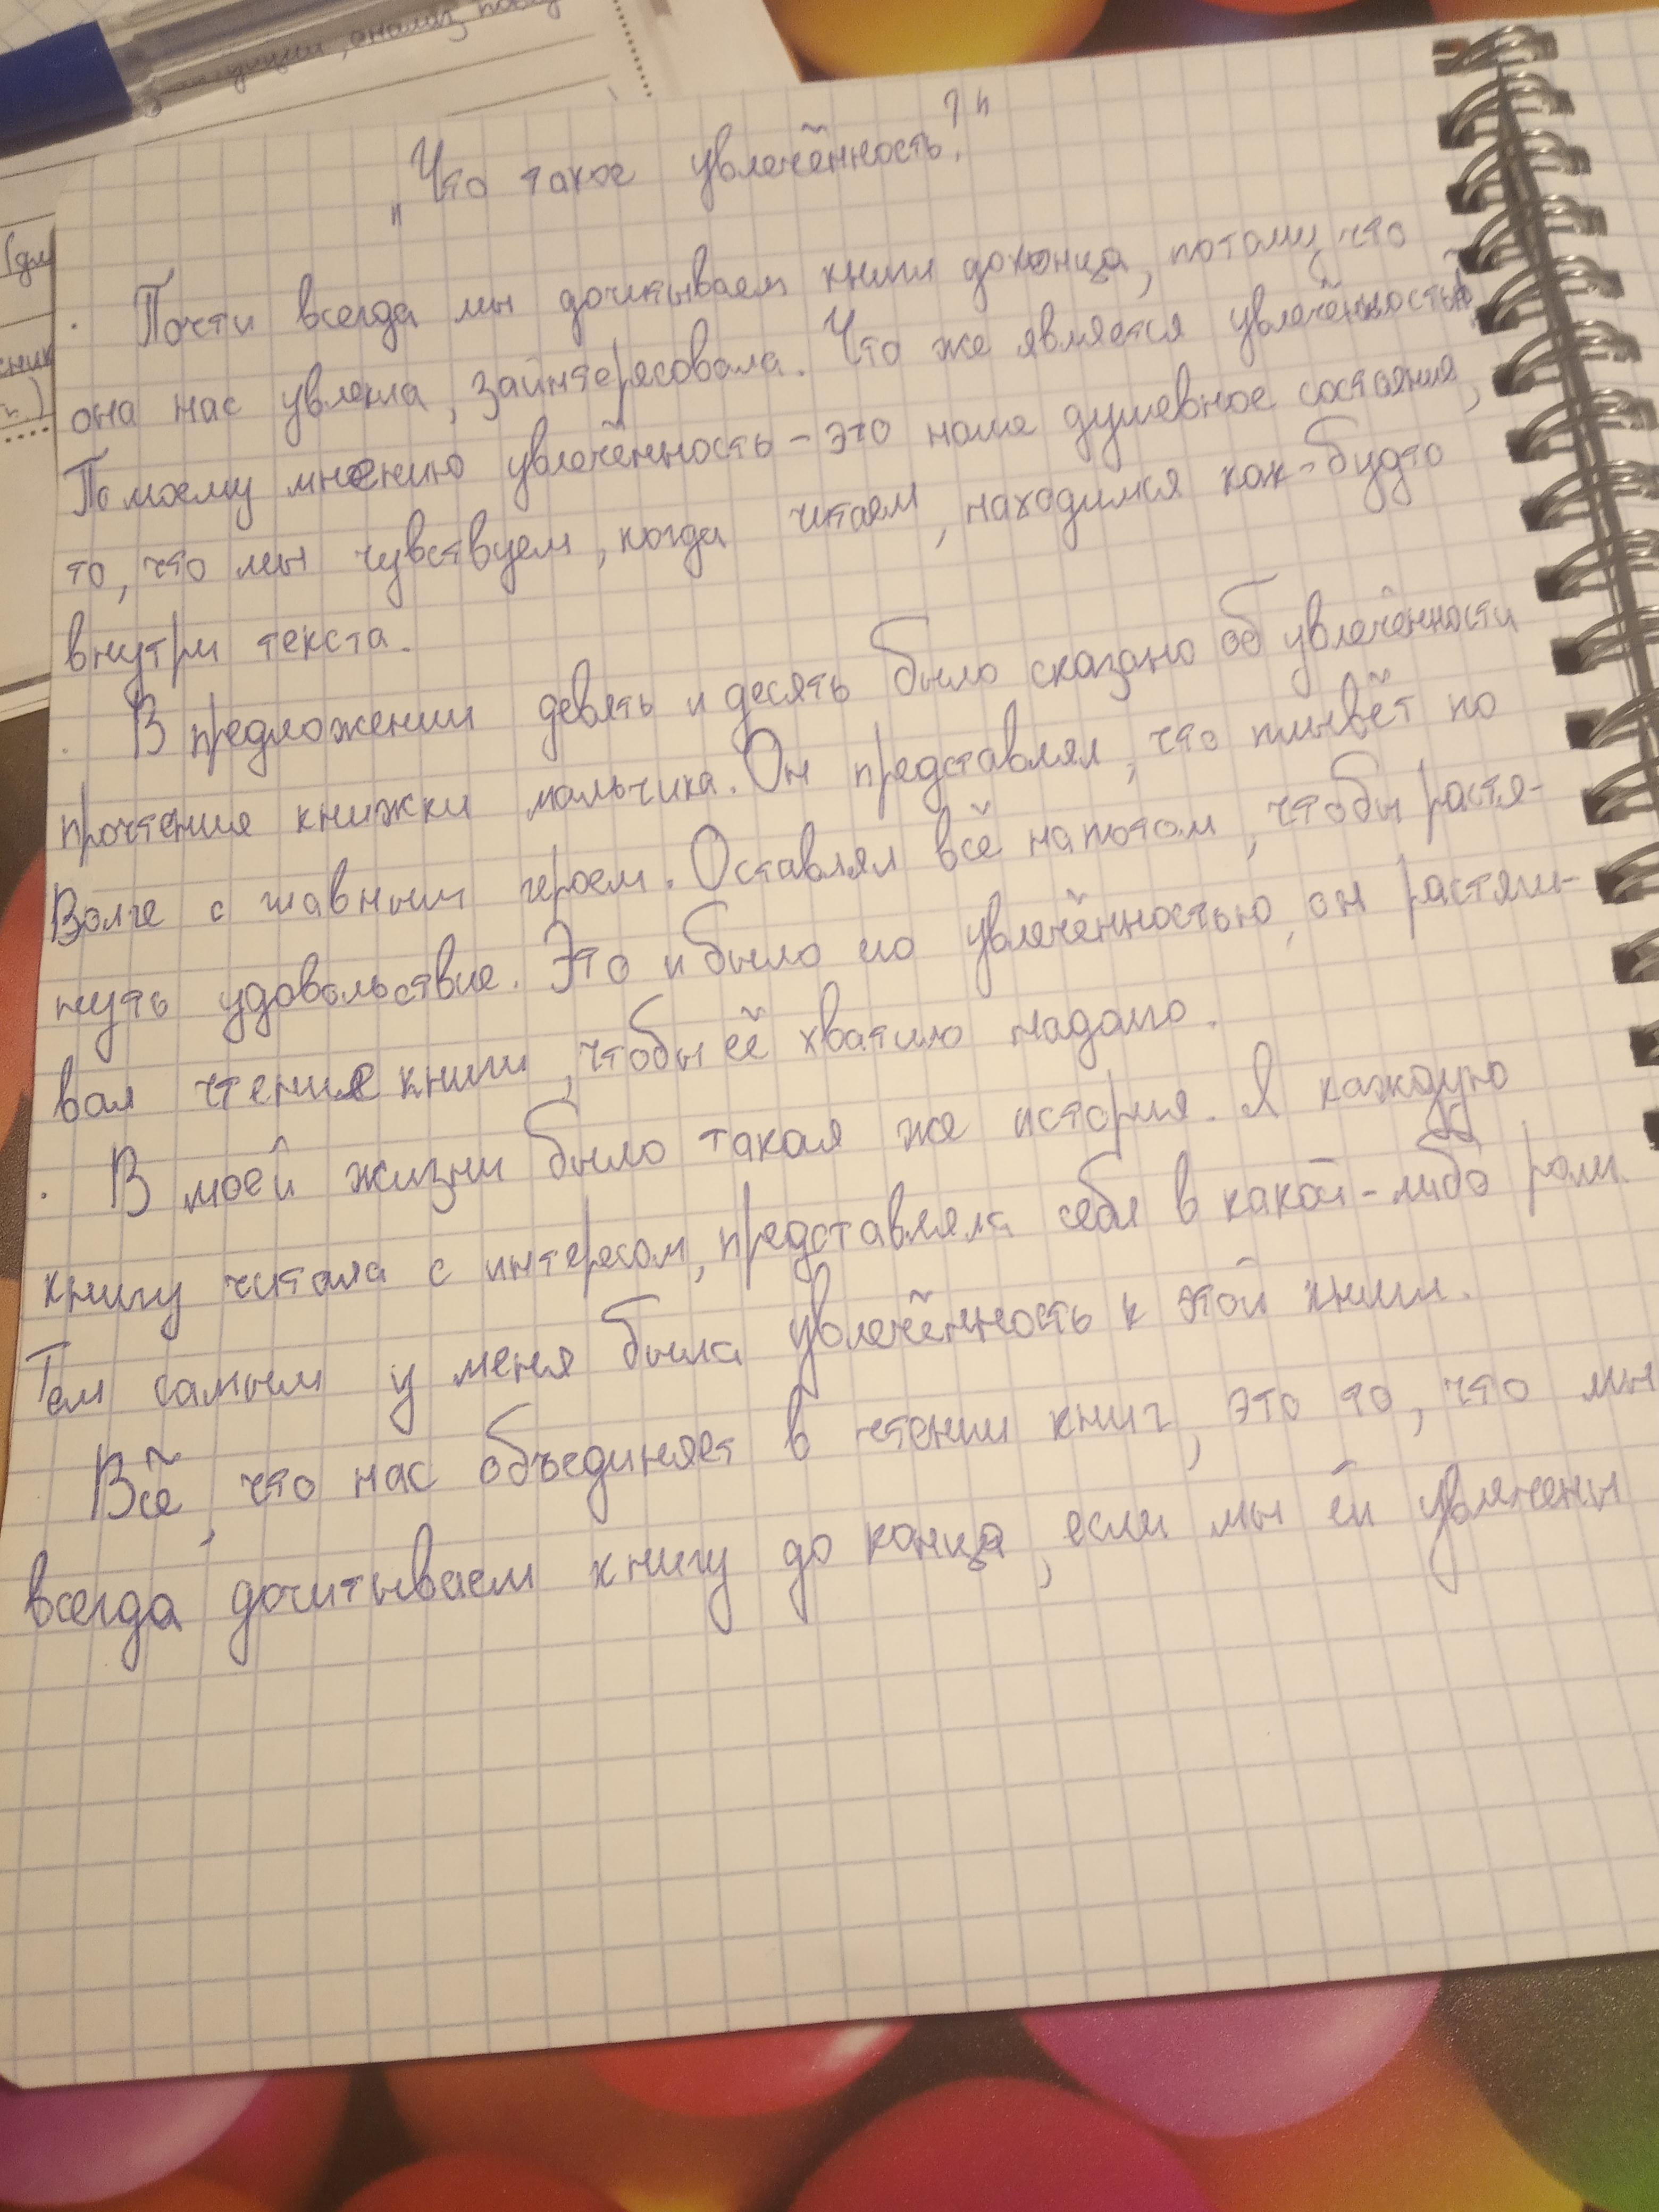 "Что такое увлечённость?"
Почти всегда мы дочитываем книги доконца, потому что
она нас увлекла, заинтересовала. Что же является увлечённостью
По моему мнению увлечённость - это наше душевное состояния,
то, что мы чувствуем, когда читаем, находимся как-будто
внутри текста.
В предложении девять и десять было сказано об увлечённости
прочтения книжки мальчика. Он представлял, что плывёт по
Волге с главным героем. Оставлял всё напотом, чтобы растя-
нуть удовольствие. Это и было его увлечённостью, он растяги-
вал чтение книги, чтобы её хватило надолго.
В моей жизни было такая же история. Я каждую
книгу читала с интересом, представляла себя в какой-либо роли.
Тем самым у меня была увлечённость к этой книги.
Всё, что нас объединяет в чтении книг, это то, что мы
всегда дочитываем книгу до конца, если мы ей увлечены